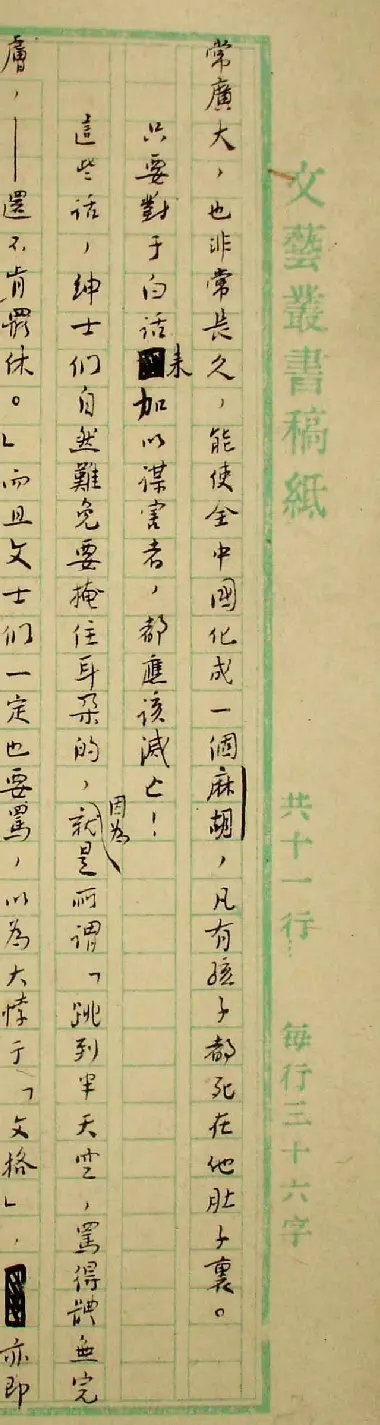 文藝叢書稿紙 共十一行 每行三十六字
常廣大，也非常長久，能使全中國化成一個麻胡，凡有孩子都死在他肚子裏。
只要對于白話来加以謀害者，都應該滅亡！
這些話，紳士们自然難免要掩住耳朵的，因為就是所謂「跳到半天空，罵得體無完
膚，——還不肯罷休。」而且文士们一定也要罵，以為大悖于「文格」，亦即